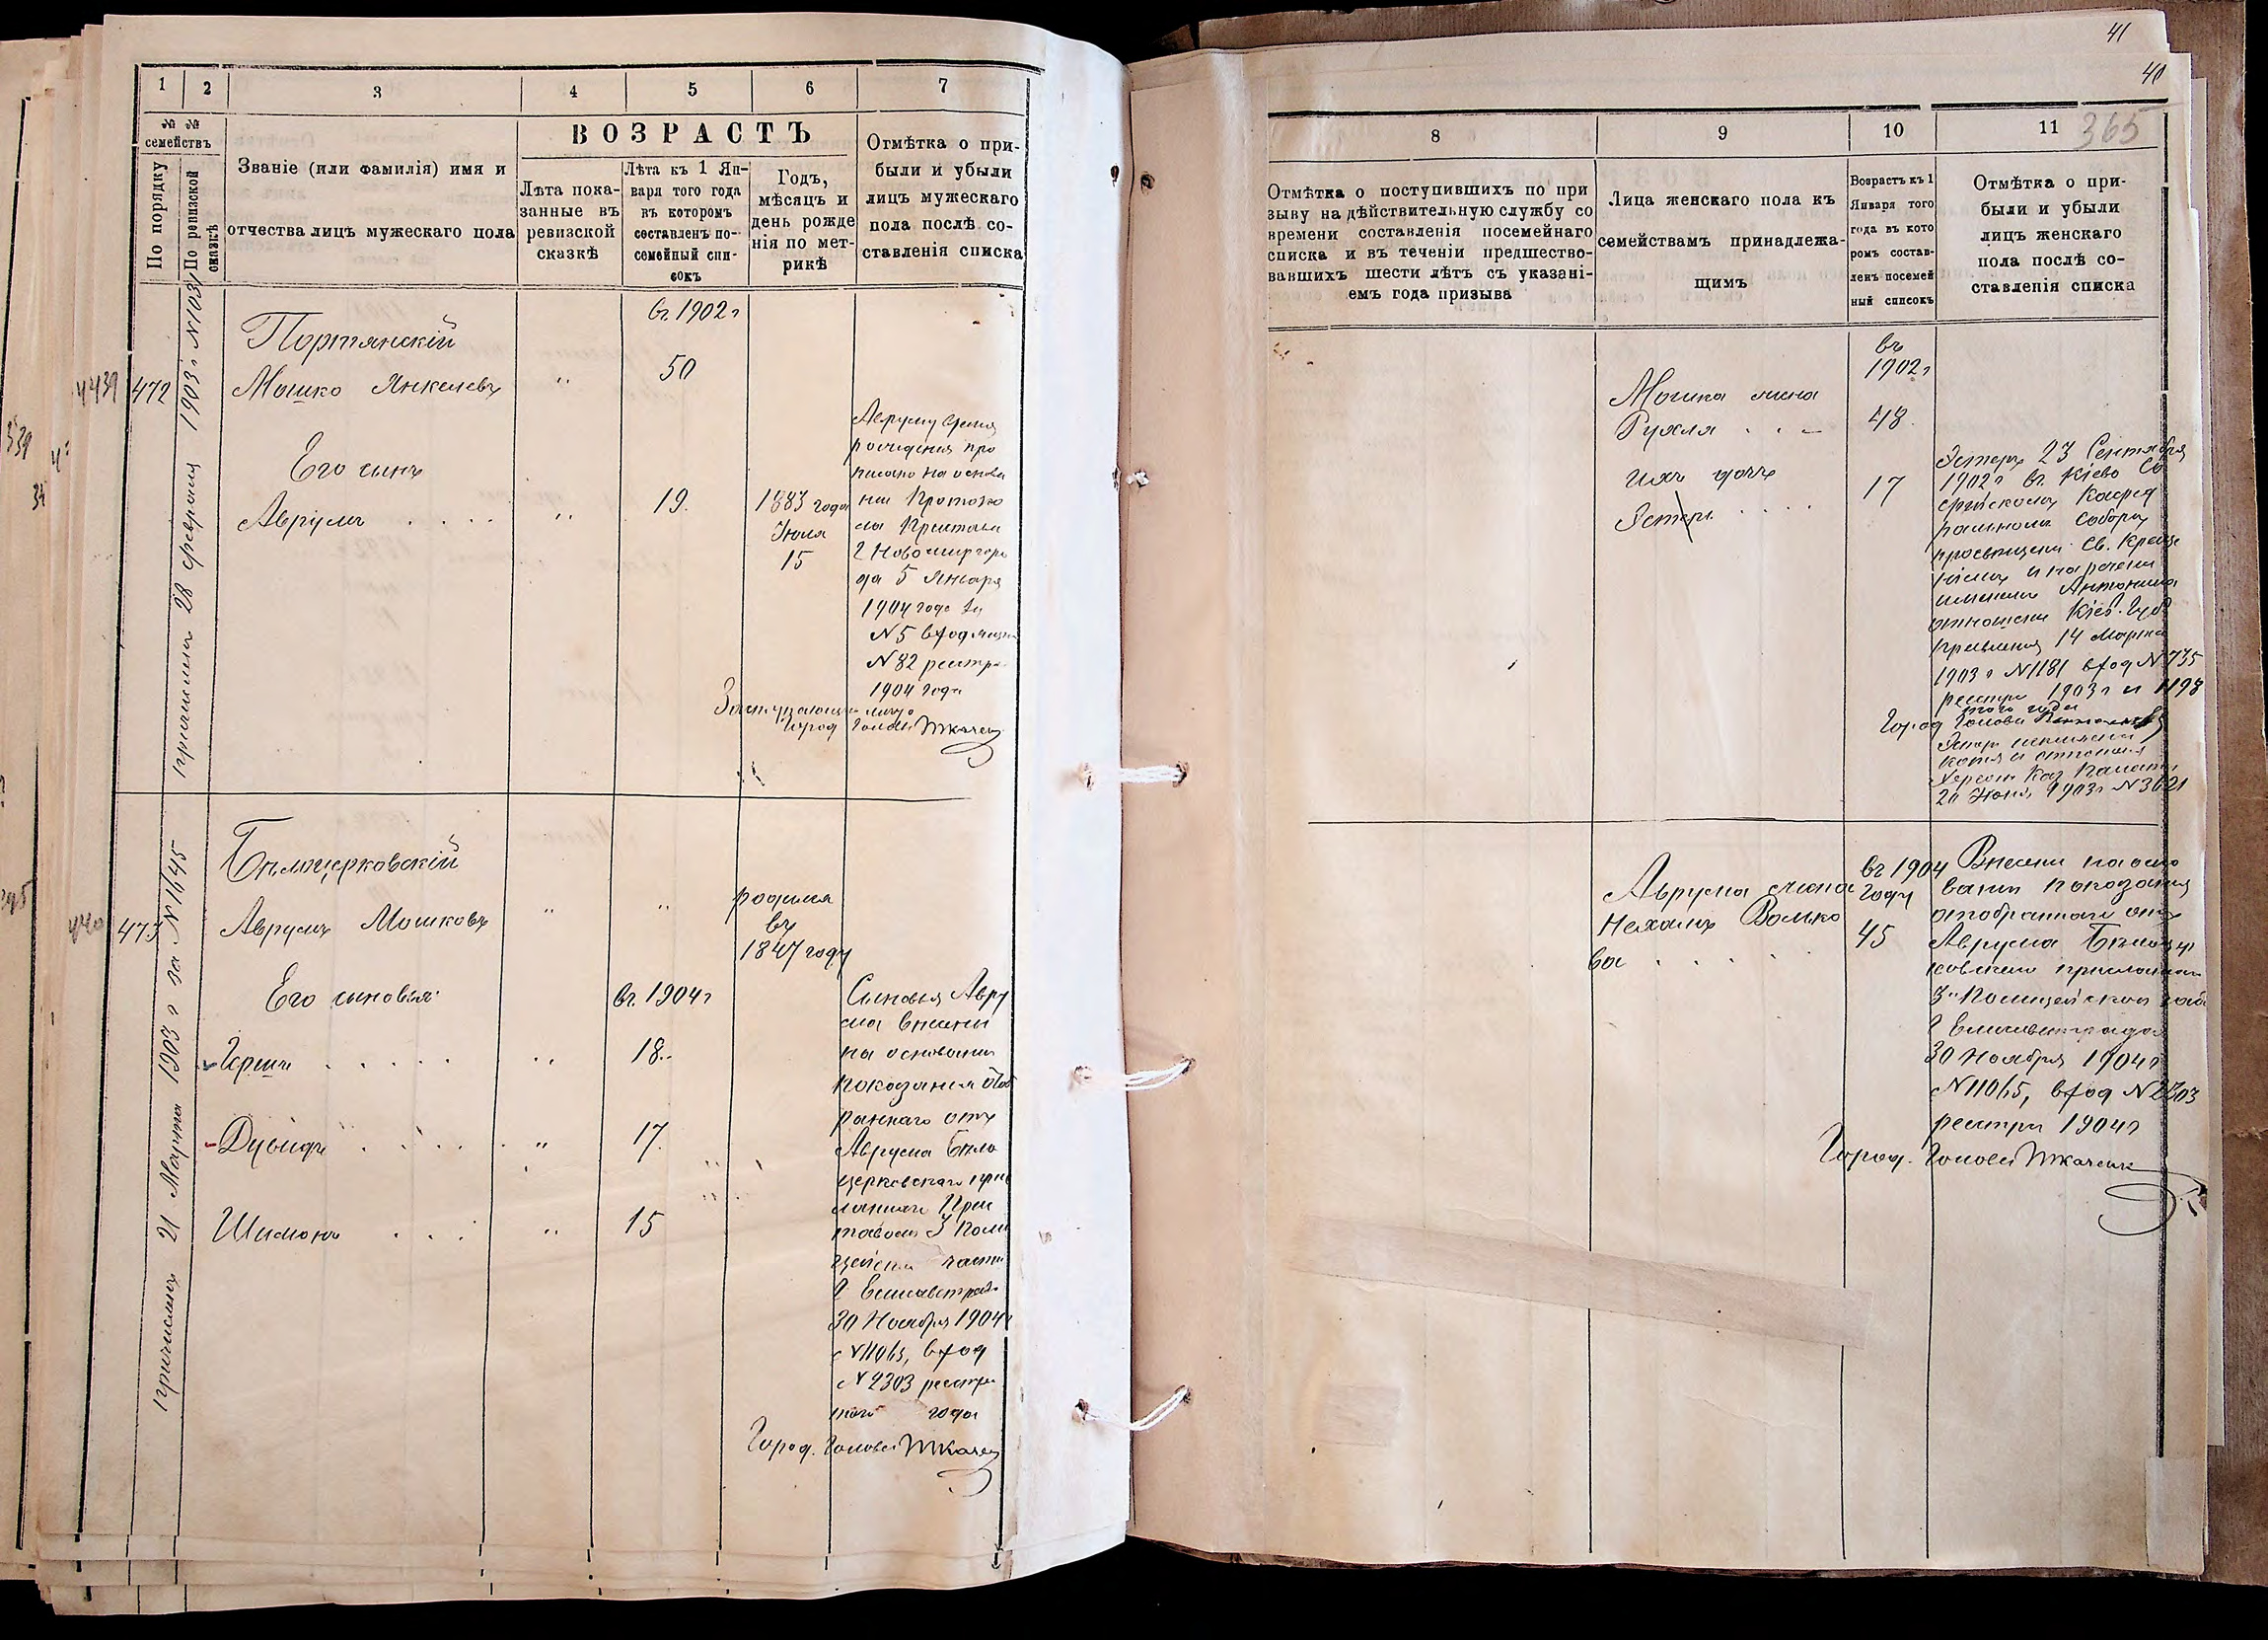 1
2
3
4
5
6
7
№ №
семействъ
По порядку
По ревизской сказкѣ
Званіе (или фамилія) имя и
отчества лицъ мужескаго пола
ВОЗРАСТЪ
Лѣта пока-
занные въ
ревизской
сказкѣ
Лѣта къ 1 Ян-
варя того года
въ которомъ
составленъ по-
семейный спи-
сокъ
Годъ,
мѣсяцъ и
день рожде
нія по мет-
рикѣ
Отмѣтка о при-
были и убыли
лицъ мужескаго
пола послѣ со-
ставленія списка
въ 1902 г
Портянскій
4439
472
Мошко Янкелевъ
"
50
Его сынъ
Аврумъ
"
19.
1883 года
Іюля
15
Авруму время
рожденія про
писано на основа
ніи Протоко
ла Пристава
г Новомирго
да 5 Января
1904 года за
N 5 входящ
N 82 реестра
1904 года
Город Голова Ткачен
причислены 28 февраля 1903 г N 1031
Бѣлоцерковскій
440
473
Аврумъ Мошковъ
"
"
родился
въ
1847 году
Его сыновья
въ 1904 г
Герш
"
18.
Дувидъ
"
17.
Шимонъ
"
15
Сыновья Авру
ма внесены
на основаніи
показанія отоб
раннаго отъ
Аврума Бѣло
церковскаго при
сланнаго При
ставомъ 3 Поли
цейской части
г Елисаветграда
30 Ноября 1904 г
N 11065, вход
N 2303 реестра
того года
Город. Голова Ткачен
причислены 21 Марта 1903 г за N 1645
41
40
365
8
9
10
11
Отмѣтка о поступившихъ по при
зыву на дѣйствительную службу со
времени составленія посемейнаго
списка и въ теченіи предшество-
вавшихъ шести лѣтъ съ указані-
емъ года призыва
Лица женскаго пола къ
семействамъ принадлежа-
щимъ
Возрастъ къ 1
Января того
года въ кото
ромъ состав-
ленъ посемей
ный списокъ
Отмѣтка о при-
были и убыли
лицъ женскаго
пола послѣ со-
ставленія списка
въ
1902 г
Мошка жена
Рухля
48.
ихъ дочь
Эстеръ
17
Эстеръ 23 Сентября
1902 г въ Кіево Со
фійскомъ Каѳед
ральномъ Соборѣ
просвѣщена Св. Креще
ніемъ и наречена
именемъ Антонина
отношеніе Кіев. Губ
Правленія 14 Марта
1903 г N 1181 вход N 735
реестра 1903 г и 1198
того года
Город Голова
Эстеръ исключена
Херсон Каз Палаты
20 Іюня 1903 г N 3621
Аврума жена
Нехамъ Волько
ва
въ 1904
году
45
Внесены на осно
ваніи показанія
отобраннаго отъ
Аврума Бѣлоцер
ковскаго присланнаго
3 Полицейской части
г Елисаветграда
30 Ноября 1904 г
N 11065, вход N 2303
реестра 1904 г
Город. Голова Ткаченк